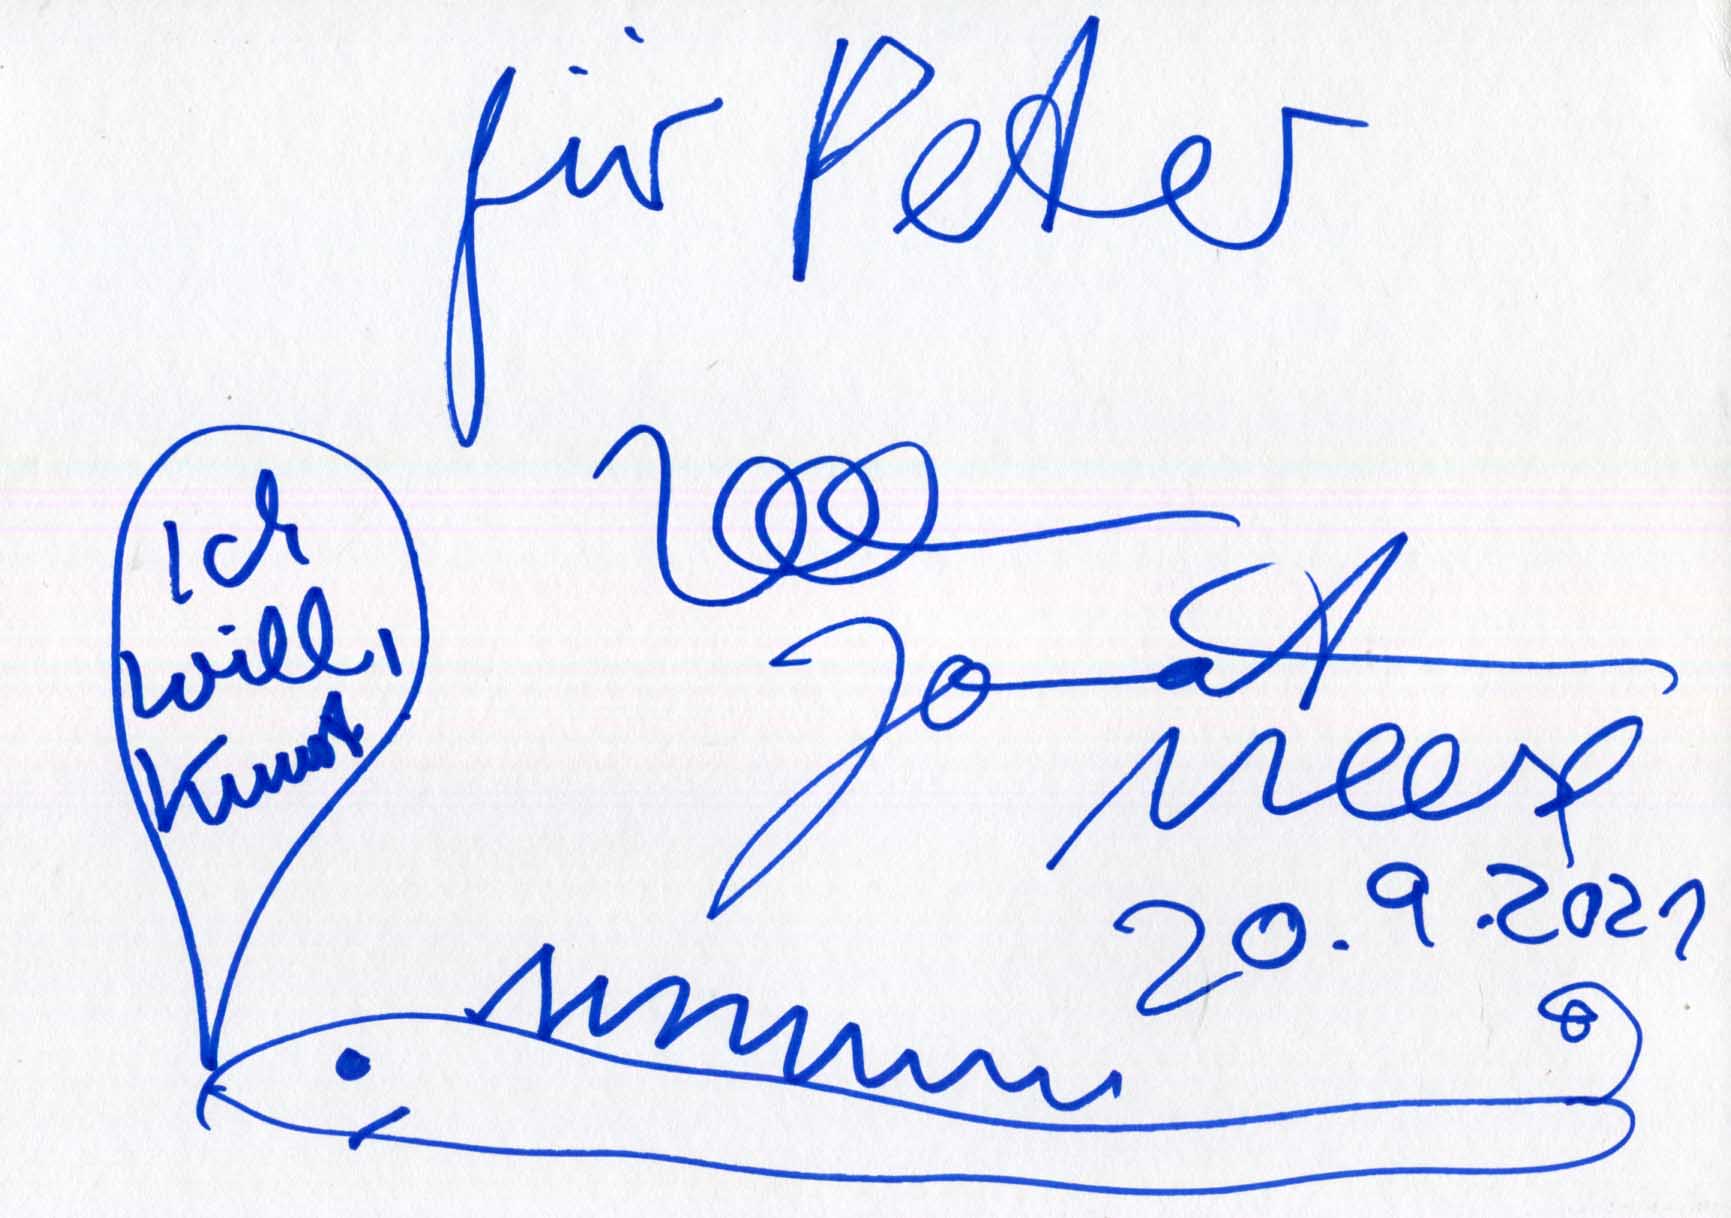 für Peter
Ich
will,
Kunst
Jonathan
Meese
20.9.2021